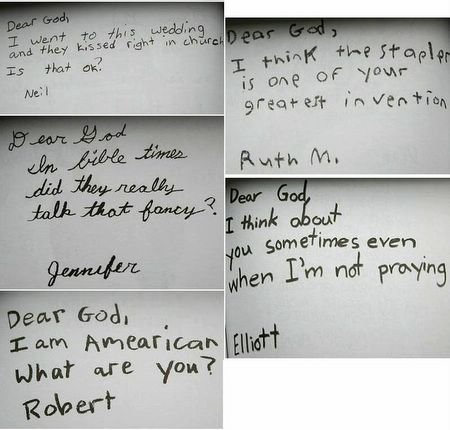 Dear God,
I went to this wedding
and they kissed right in church
Is that ok?
Neil
Dear God
In bible times
did they really
talk that fancy?
Jennifer
Dear God,
I am Amearican
What are you?
Robert
Dear God,
I think the stapler
is one of your
greatest invention
Ruth M.
Dear God,
I think about
you sometimes even
when I'm not praying
Elliott